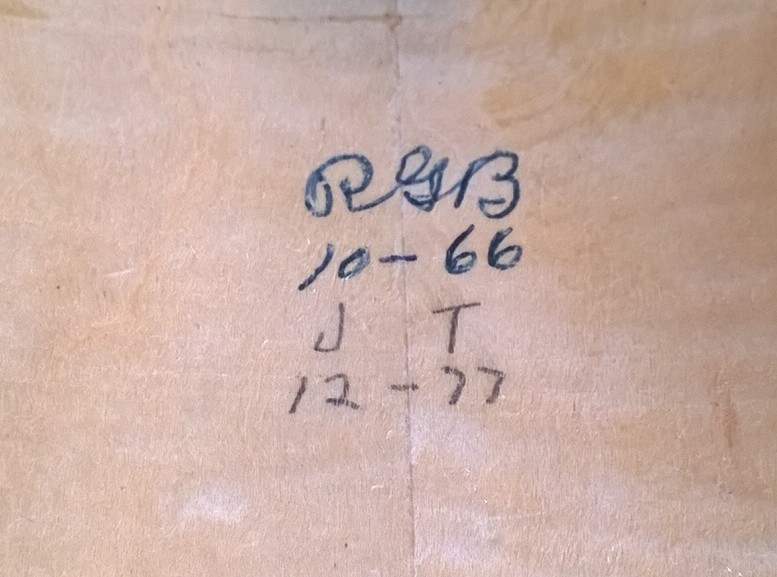 RGB
10-66
J T
12-77